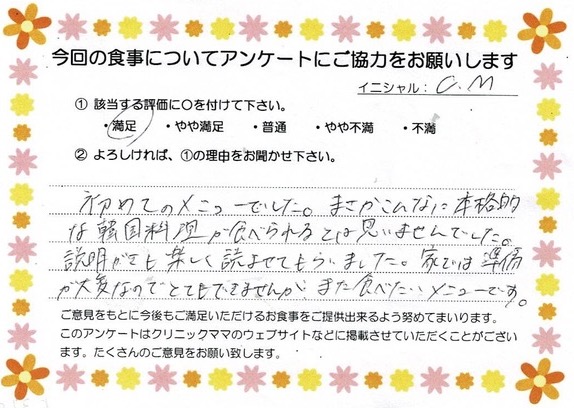 今回の食事についてアンケートにご協力をお願いします
イニシャル： C.M
① 該当する評価に○を付けて下さい。
・満足 ・やや満足 ・普通 ・やや不満 ・不満
② よろしければ、①の理由をお聞かせ下さい。
初めてのメニューでした。まさかこんなに本格的
な韓国料理が食べられるとは思いませんでした。
説明がきも楽しく読ませてもらいました。家では準備
が大変なのでとてもできませんが、また食べたいメニューです。
ご意見をもとに今後もご満足いただけるお食事をご提供出来るよう努めてまいります。
このアンケートはクリニックママのウェブサイトなどに掲載させていただくことがござい
ます。たくさんのご意見をお願い致します。